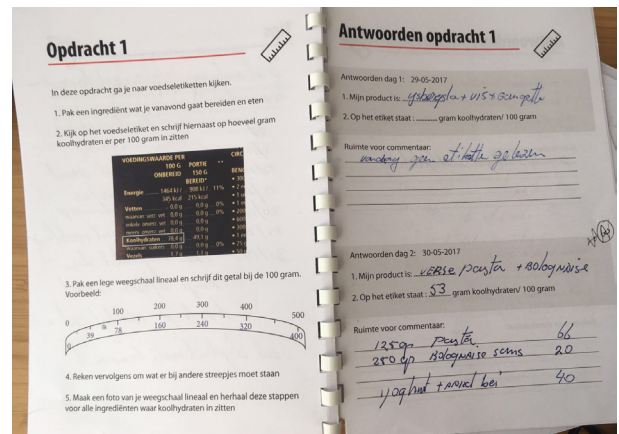 Opdracht 1
In deze opdracht ga je naar voedseletiketten kijken.
1. Pak een ingrediënt wat je vanavond gaat bereiden en eten
2. Kijk op het voedseletiket en schrijf hiernaast op hoeveel gram
koolhydraten er per 100 gram in zitten
VOEDINGSWAARDE PER
100 G PORTIE **
ONBEREID 150 G
BEREID*
Energie 1464 kJ / 908 kJ / 11%
345 kcal 215 kcal
Vetten 0,0 g 0,0 g 0%
Koolhydraten 76,4 g 49,1 g
Vezels 1,7 g 1,1 g
3. Pak een lege weegschaal lineaal en schrijf dit getal bij de 100 gram.
Voorbeeld:
0 100 200 300 400 500
0 39 78 160 240 320 400
4. Reken vervolgens om wat er bij andere streepjes moet staan
5. Maak een foto van je weegschaal lineaal en herhaal deze stappen
voor alle ingrediënten waar koolhydraten in zitten
Antwoorden opdracht 1
Antwoorden dag 1: 29-05-2017
1. Mijn product is: + vis +
2. Op het etiket staat : gram koolhydraten/ 100 gram
Ruimte voor commentaar:
vandaag geen etiketten gelezen
Antwoorden dag 2: 30-05-2017
1. Mijn product is: verse pasta + Bolognaise
2. Op het etiket staat : 53 gram koolhydraten/ 100 gram
Ruimte voor commentaar:
125 gr pasta 66
250 gr Bolognaise saus 20
yoghurt + 40